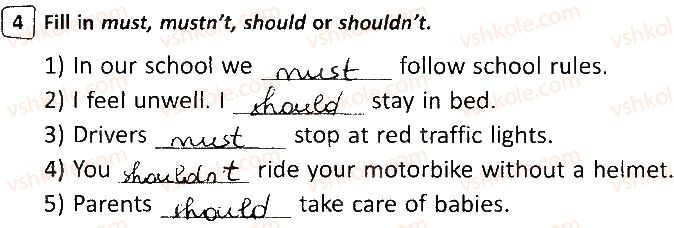 4 Fill in must, mustn't, should or shouldn't.
1) In our school we must follow school rules.
2) I feel unwell. I should stay in bed.
3) Drivers must stop at red traffic lights.
4) You shouldn't ride your motorbike without a helmet.
5) Parents should take care of babies.